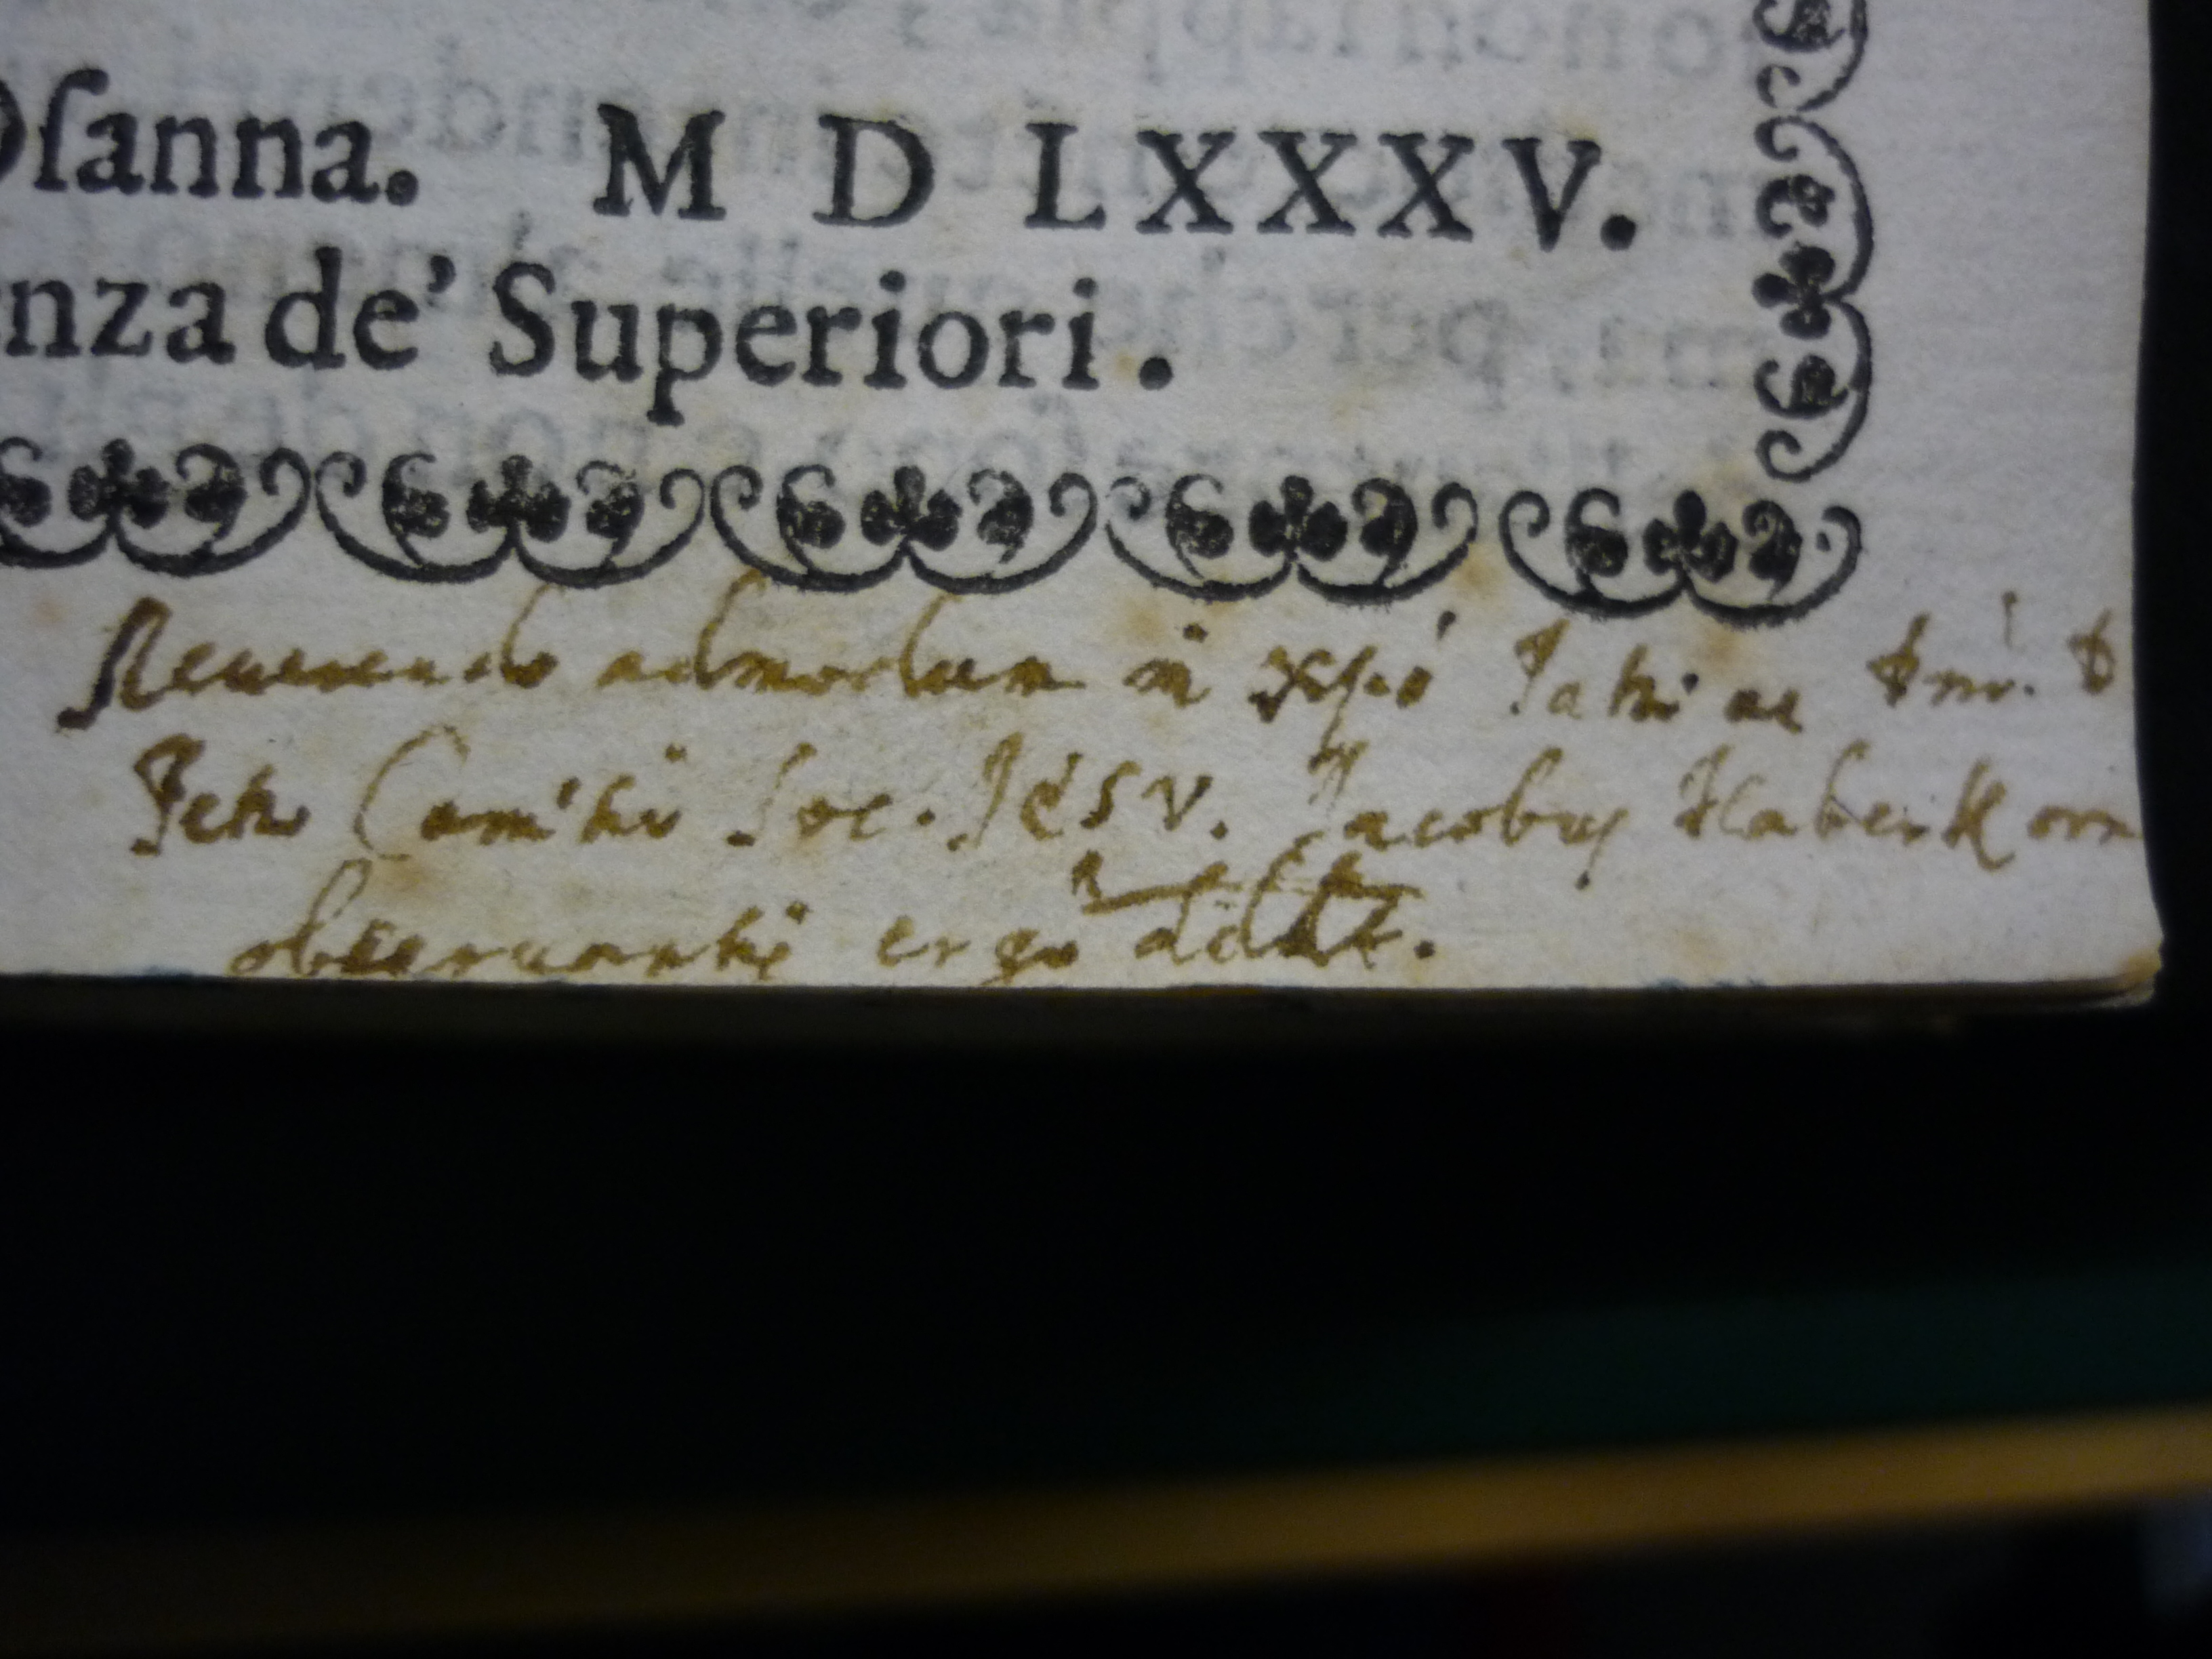 Oſanna. M D LXXXV.
enza de' Superiori.
Reuerendo admodum in xp̄o Patri ac Dn̄o. D
Petro Canisio Soc. IESV. Jacobus Haberkorn
obseruantiæ ergo